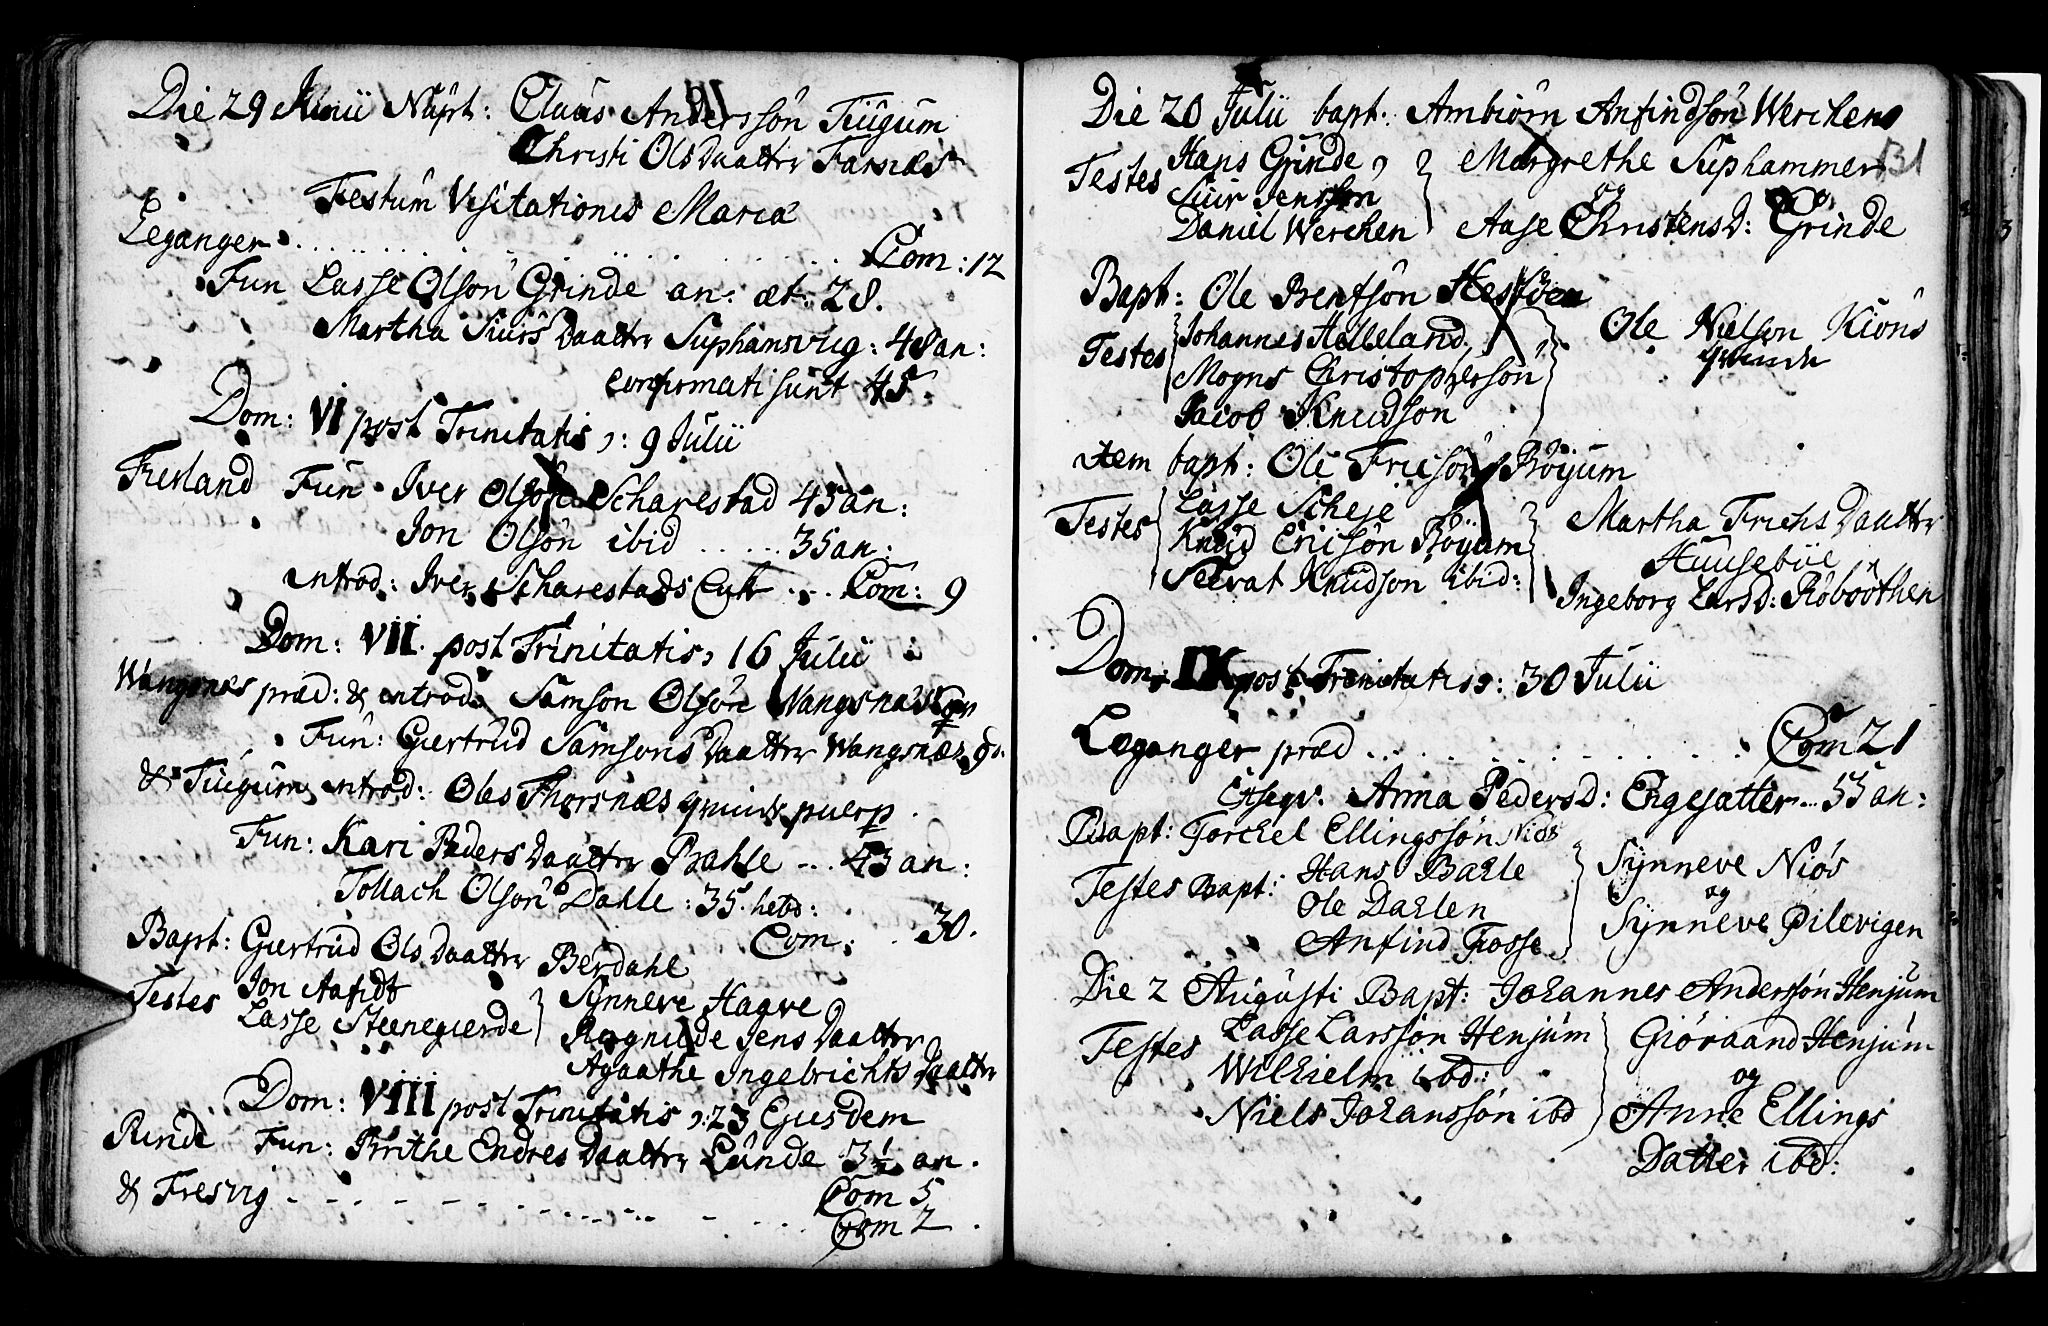 Die 29 Junii Nupt: Claus Anderssön Tiugum
Christi Olsdaatter Farnæs
Festum Visitationis Mariæ
Leganger . . . . . . Com: 12
Fun Lasse Olsön Grinde an: æt: 28.
Martha Siurs Daatter Suphamsvig: 48 an:
confirmati sunt 45
Dom: VI post Trinitatis, : 9 Julii
Fierland Fun Iver Olsön Scharestad 43 an:
Jon Olsön ibid . . . . . 35 an:
introd: Iver Scharestads . . . Com: 9
Dom: VII. post Trinitatis, 16 Julii
Wangsnes præd: & introd: Samson Olsön Wangsnæs
Fun: Giertrud Samsons Daatter Wangsnæs
& Tiugum introd: Oles Thorsnæs qvinde puerp.
Fun: Kari Peders Daatter Bahle - .. 43 an:
Tollach Olsön Dahle : 35. hebd:
Com: . 30.
Bapt: Giertrud Ols Daatter Berdahl
Testes Jon
Lasse Steenegierde
Synneve Hagve
Ragnilde Jens Daatter
Agaathe Ingebrichts Daatter
Dom: VIII post Trinitatis, : 23 Ejusdem
Rinde Fun: Brithe Endres Daatter Lunde 3½ an.
& Fresvig - - - - - - Com 5
Com 2
131
Die 20 Julii bapt. Ambiörn Anfindsön Werchen
Testes Hans Grinde,
Siur Jenssön
Daniel Werchen
Margrethe Suphammer
og
Aase Christensd: Grinde
Bapt: Ole Bentsön
Testes Johannes Helleland
Mogns Christophersön
Jacob Knudsön
Ole Nielson Kions
qvinde
item bapt: Ole Fricsön Böyum
Testes Lasse Scheje
Knud Ericsön Böyum
Seevat Knudson ibid:
Martha Frichs Daatter
Huusebÿe
Ingeborg Larsd: Röboothen
Dom: IX post Trinitatis, : 30 Julii
Leganger præd . . . . . . Com 21
Exseqv. Anna Pedersd: Engesætter... 55 an:
Bapt: Torckel Ellingssön Niös
Testes Bapt: Hans Bahle
Ole Dahlen
Anfind Fosse
Sÿnneve Niös
og
Sÿnneve Pilevigen
Die 2 Augusti Bapt: Johannes Anderssön Henjum
Testes Lasse Larssön Henjum
Wilhielm ibd:
Niels Johanssön ibd
Giöraand Henjum
og
Anne Ellings
Datter ibd: